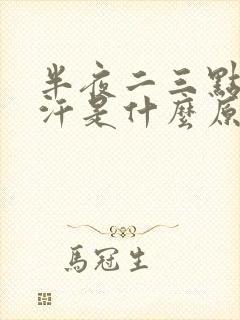 半夜二三點
汗是什麼原
馬冠生